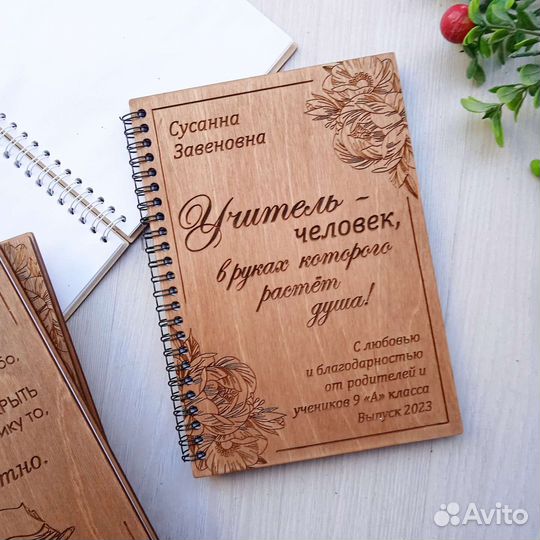 Сусанна
Завеновна
Учитель -
человек,
в руках которого
растёт
душа!
С любовью
и благодарностью
от родителей и
учеников 9 «А» класса
Выпуск 2023
Avito